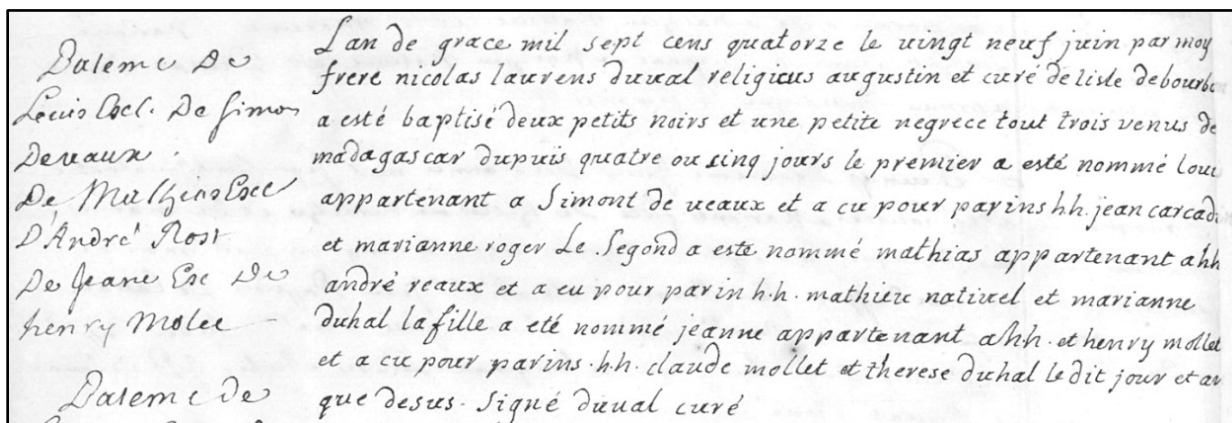 Bateme De
Louis Escl. De Simon
Devaux.
De Mathieu Escl
D'André Rost
De Jeane Esc De
henry Molec
Bateme de
Lan de grace mil sept cens quatorze le vingt neuf juin par moy
frere nicolas laurens duval religieus augustin et curé de lisle debourbon
a esté baptisé deux petits noirs et une petite negrece tout trois venus de
madagascar dupuis quatre ou sinq jours le premier a esté nommé loui
appartenant a Simont de veaux et a eu pour parins hh. jean carcadi
et marianne roger Le Segond a esté nommé mathias appartenant ahh
andré reaux et a eu pour parin h.h. mathieu nativel et marianne
duhal la fille a eté nommé jeanne appartenant ahh. et henry mollet
et a eu pour parins .h.h. claude mollet et therese duhal le dit jour et an
que desus. Signé duval curé